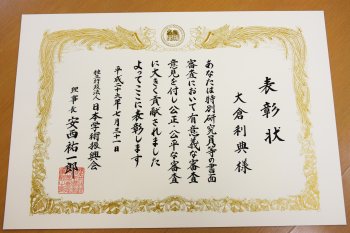 表彰状
大倉利典様
あなたは特別研究員等の書面
審査において有意義な審査
意見を付し公正・公平な審査
に大きく貢献されました
よってここに表彰します
平成二十六年七月三十一日
独立行政法人 日本学術振興会
理事長 安西祐一郎